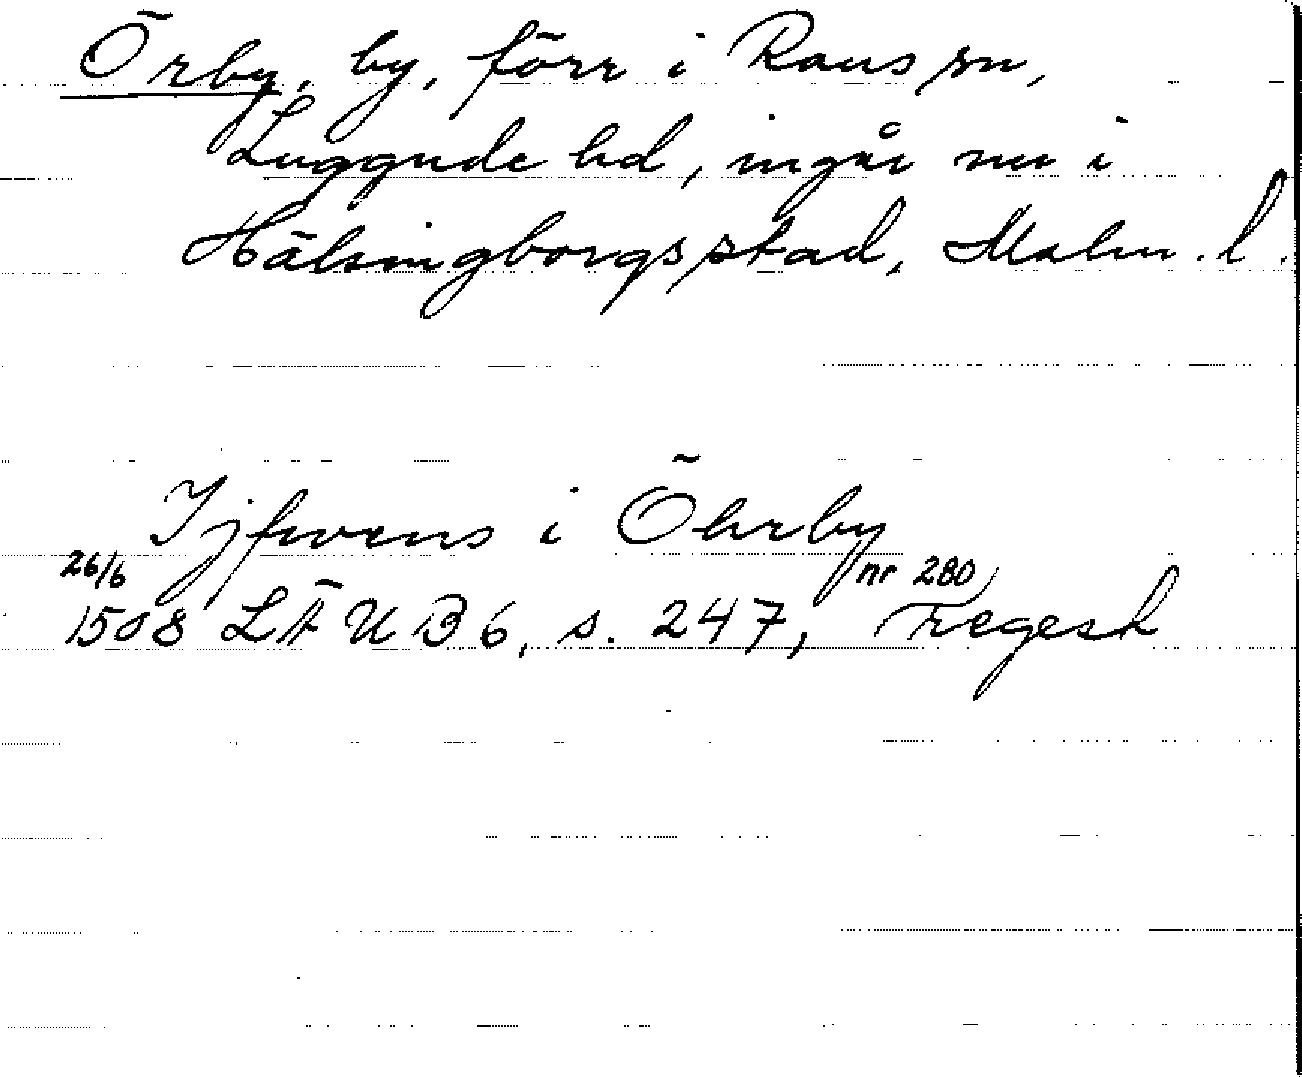 Örby, by, förr i Raus sn,
Luggude hd, ingår nu i
Hälsingborgs stad, Malm. l.
Ijfwens i Öhrby
26/6 nr 280
1508 LÄUB 6, s. 247, regest